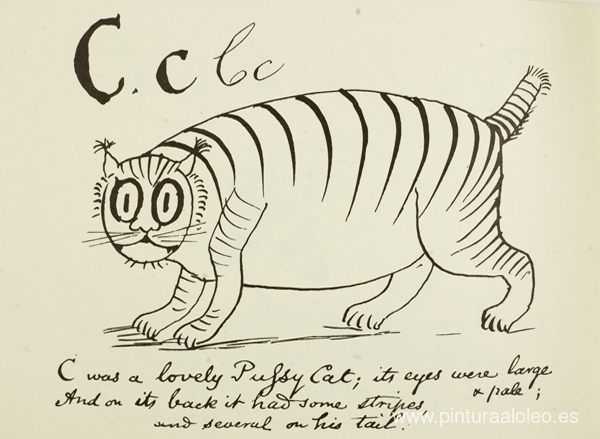 C. c C c
C was a lovely Pussy Cat; its eyes were large
& pale;
And on its back it had some stripes,
and several on his tail.
www.pinturaaloleo.es